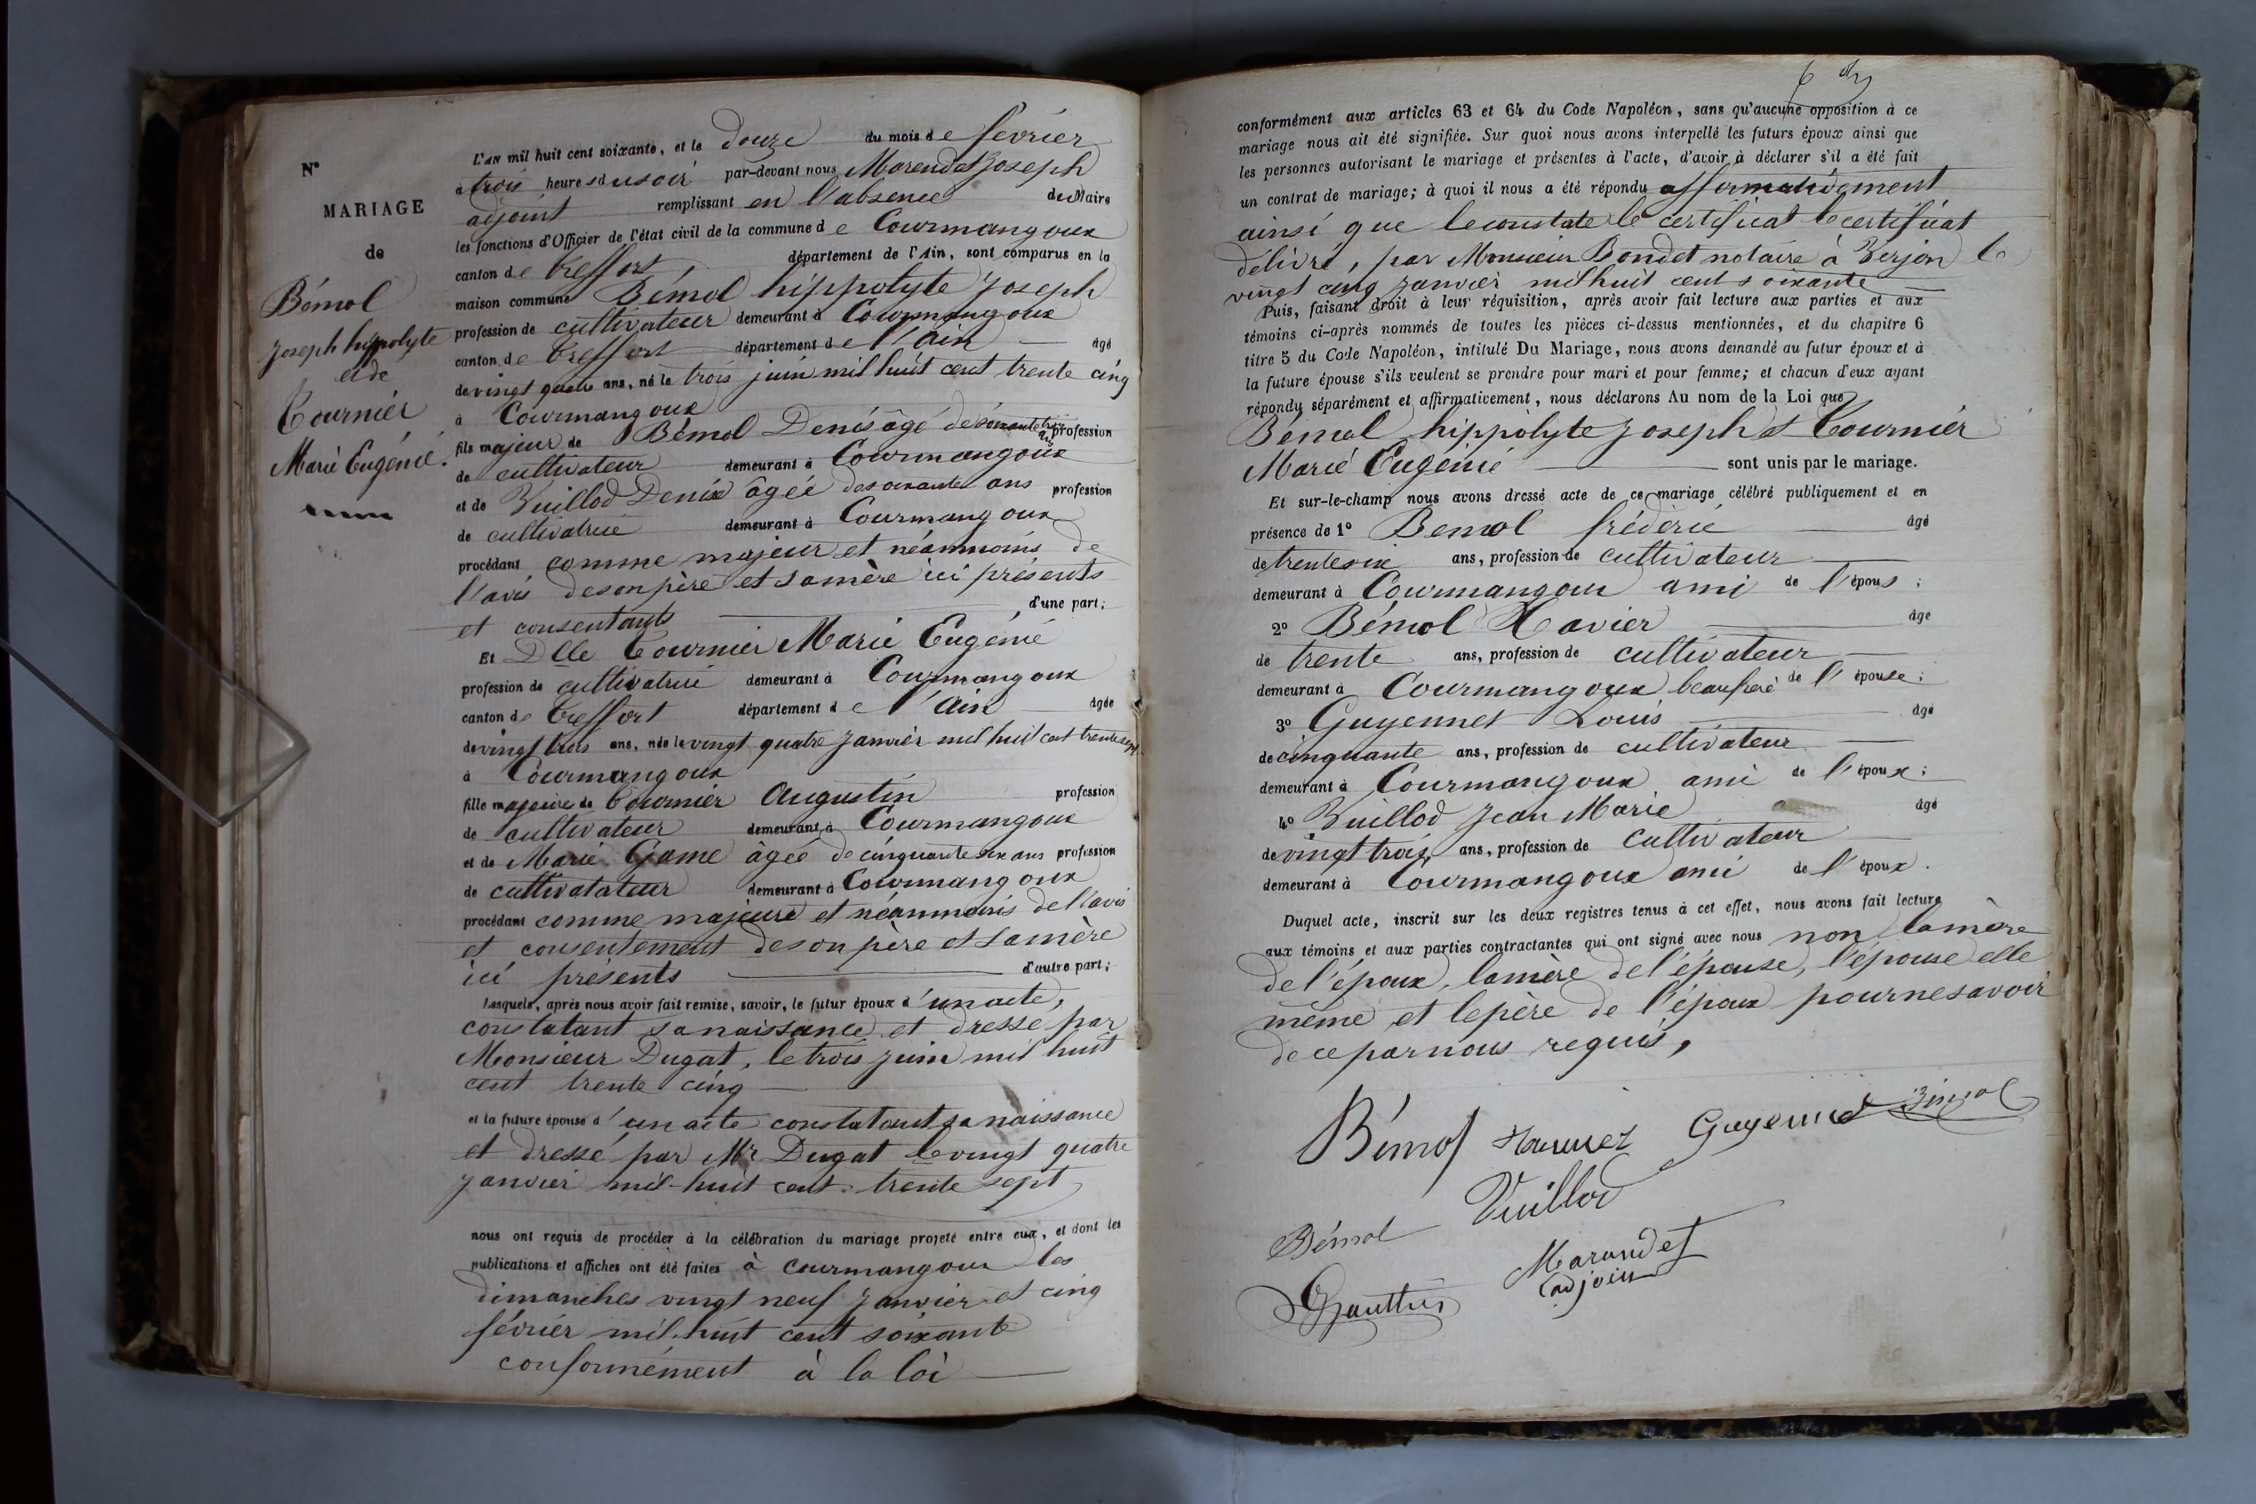 N°
MARIAGE
de
Bémol
Joseph hippolyte
et de
Tournier
Marie Eugénie.
L'AN mil huit cent soixante, et le douze du mois de février
à trois heures du soir par-devant nous Marendet Joseph
adjoint remplissant en l'absence du Maire
les fonctions d'Officier de l'état civil de la commune de Courmangoux
canton de Treffort, département de l'Ain, sont comparus en la
maison commune Bémol hippolyte Joseph
profession de cultivateur demeurant à Courmangoux
canton de Treffort département de l'Ain âgé
de vingt quatre ans, né le trois juin mil huit cent trente cinq
à Courmangoux
fils majeur de Bémol Denis âgé de soixante trois ans profession
de cultivateur demeurant à Courmangoux
et de Vuillod Denise âgée de soixante ans profession
de cultivatrice demeurant à Courmangoux
procédant comme majeur et néanmoins de
l'avis de son père et sa mère ici présents
et consentants d'une part;
Et Dlle Tournier Marie Eugénie
profession de cultivatrice demeurant à Courmangoux
canton de Treffort département de l'Ain âgée
de vingt trois ans, née le vingt quatre janvier mil huit cent trente sept
à Courmangoux
fille majeure de Tournier Augustin profession
de cultivateur demeurant à Courmangoux
et de Marie Game âgée de cinquante six ans profession
de cultivatateur demeurant à Courmangoux
procédant comme majeure et néanmoins de l'avis
et consentement de son père et sa mère
ici présents d'autre part;
Lesquels, après nous avoir fait remise, savoir, le futur époux d'un acte,
constatant sa naissance et dressé par
Monsieur Dugat, le trois juin mil huit
cent trente cinq
et la future épouse d'un acte constatant sa naissance
et dressé par Mr Dugat le vingt quatre
janvier mil huit cent trente sept
nous ont requis de procéder à la célébration du mariage projeté entre eux, et dont les
publications et affiches ont été faites à Courmangoux les
dimanches vingt neuf janvier et cinq
février mil huit cent soixante
conformément à la loi
conformément aux articles 63 et 64 du Code Napoléon, sans qu'aucune opposition à ce
mariage nous ait été signifiée. Sur quoi nous avons interpellé les futurs époux ainsi que
les personnes autorisant le mariage et présentes à l'acte, d'avoir à déclarer s'il a été fait
un contrat de mariage; à quoi il nous a été répondu affirmativement
ainsi que le constate le certificat le certificat
délivré, par Monsieur Bondet notaire à Verjon le
vingt cinq janvier mil huit cent soixante
Puis, faisant droit à leur réquisition, après avoir fait lecture aux parties et aux
témoins ci-après nommés de toutes les pièces ci-dessus mentionnées, et du chapitre 6
titre 5 du Code Napoléon, intitulé Du Mariage, nous avons demandé au futur époux et à
la future épouse s'ils veulent se prendre pour mari et pour femme; et chacun d'eux ayant
répondu séparément et affirmativement, nous déclarons Au nom de la Loi que
Bémol hippolyte Joseph et Tournier
Marie Eugénie sont unis par le mariage.
Et sur-le-champ nous avons dressé acte de ce mariage célébré publiquement et en
présence de 1° Bemol frédéric âgé
de trente six ans, profession de cultivateur
demeurant à Courmangoux ami de l'époux;
2° Bémol Xavier âgé
de trente ans, profession de cultivateur
demeurant à Courmangoux beaufrère de l'épouse;
3° Guyennet Louis âgé
de cinquante ans, profession de cultivateur
demeurant à Courmangoux ami de l'époux;
4° Vuillod Jean Marie âgé
de vingt trois ans, profession de cultivateur
demeurant à Courmangoux ami de l'époux.
Duquel acte, inscrit sur les deux registres tenus à cet effet, nous avons fait lecture
aux témoins et aux parties contractantes qui ont signé avec nous non la mère
de l'époux, la mère de l'épouse, l'épouse elle
même et le père de l'époux pour ne savoir
de ce par nous requis,
Bémol Guyennet Bémol
Vuillod
Bémol
Marandet
adjoint
Gauthier